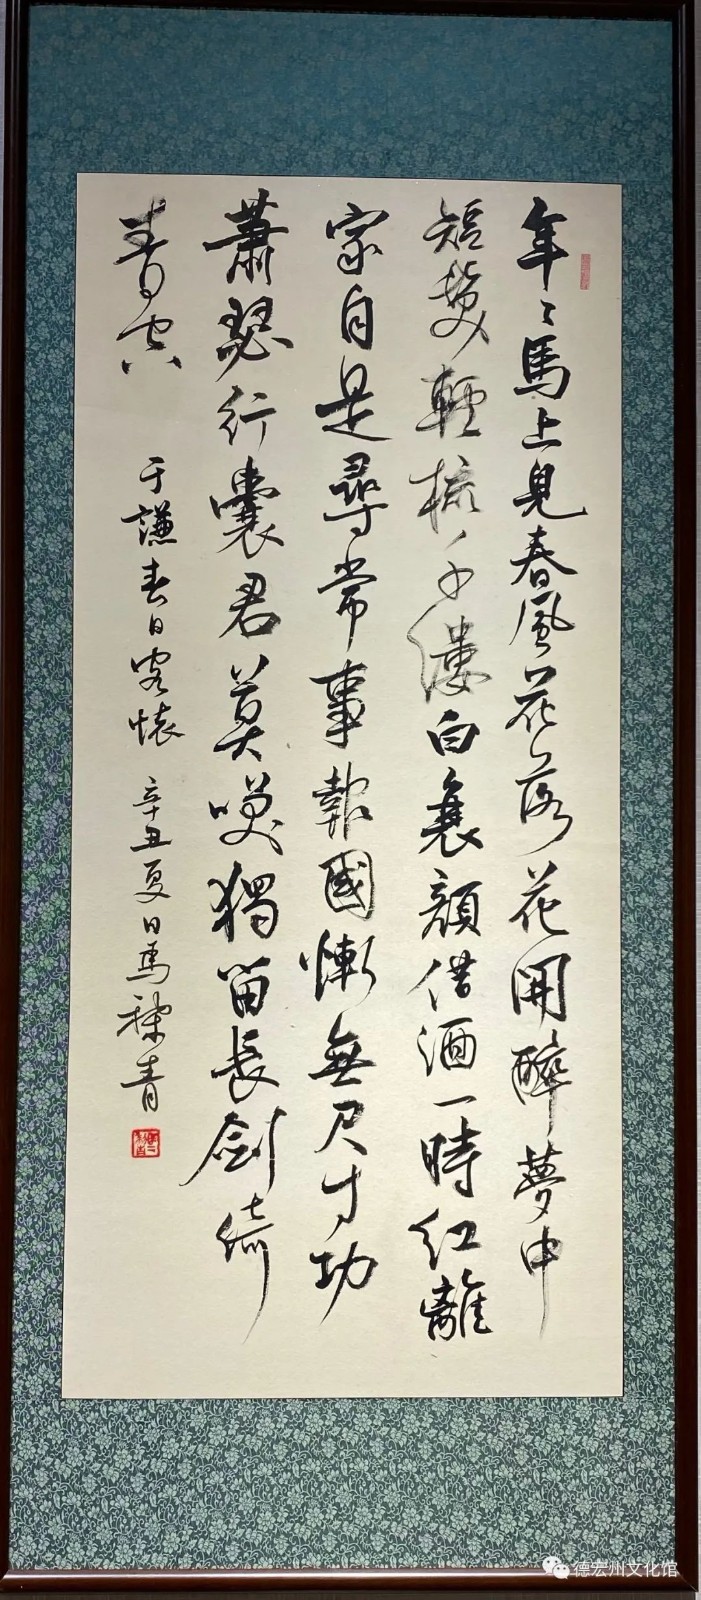 年〻馬上見春風花落花開醉夢中
短髮輕梳千縷白衰顔借酒一時紅離
家自是尋常事報國慚無尺寸功
蕭瑟行囊君莫笑獨留長劍倚
青空
于謙春日客懷 辛丑夏日馬 青
德宏州文化馆